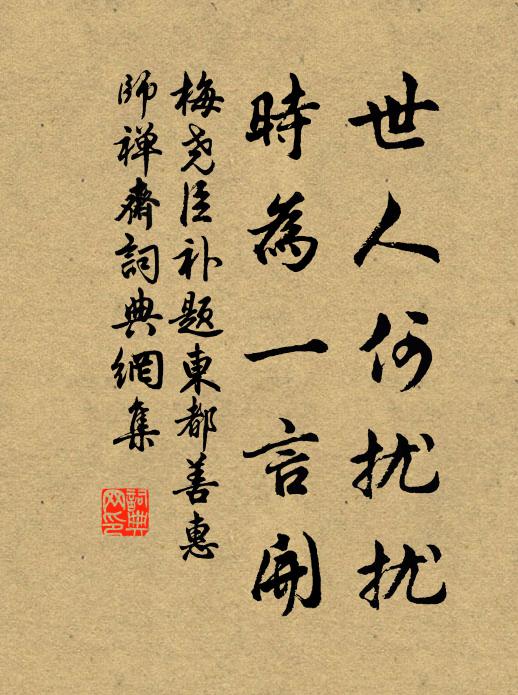 世人何扰扰
時為一言開
梅尧臣补题東都善惠
師禅齋詞典網集
詞典网印